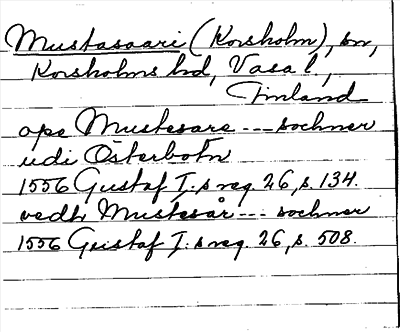 Mustasaari (Korsholm), sn,
Korsholms hd, Vasa l,
Finland
opa Mustesare --- sochner
udi Österbotn
1556 Gustaf I:s reg. 26, s. 134.
vedh Mustesår --- sochner
1556 Gustaf I:s reg. 26, s. 508.